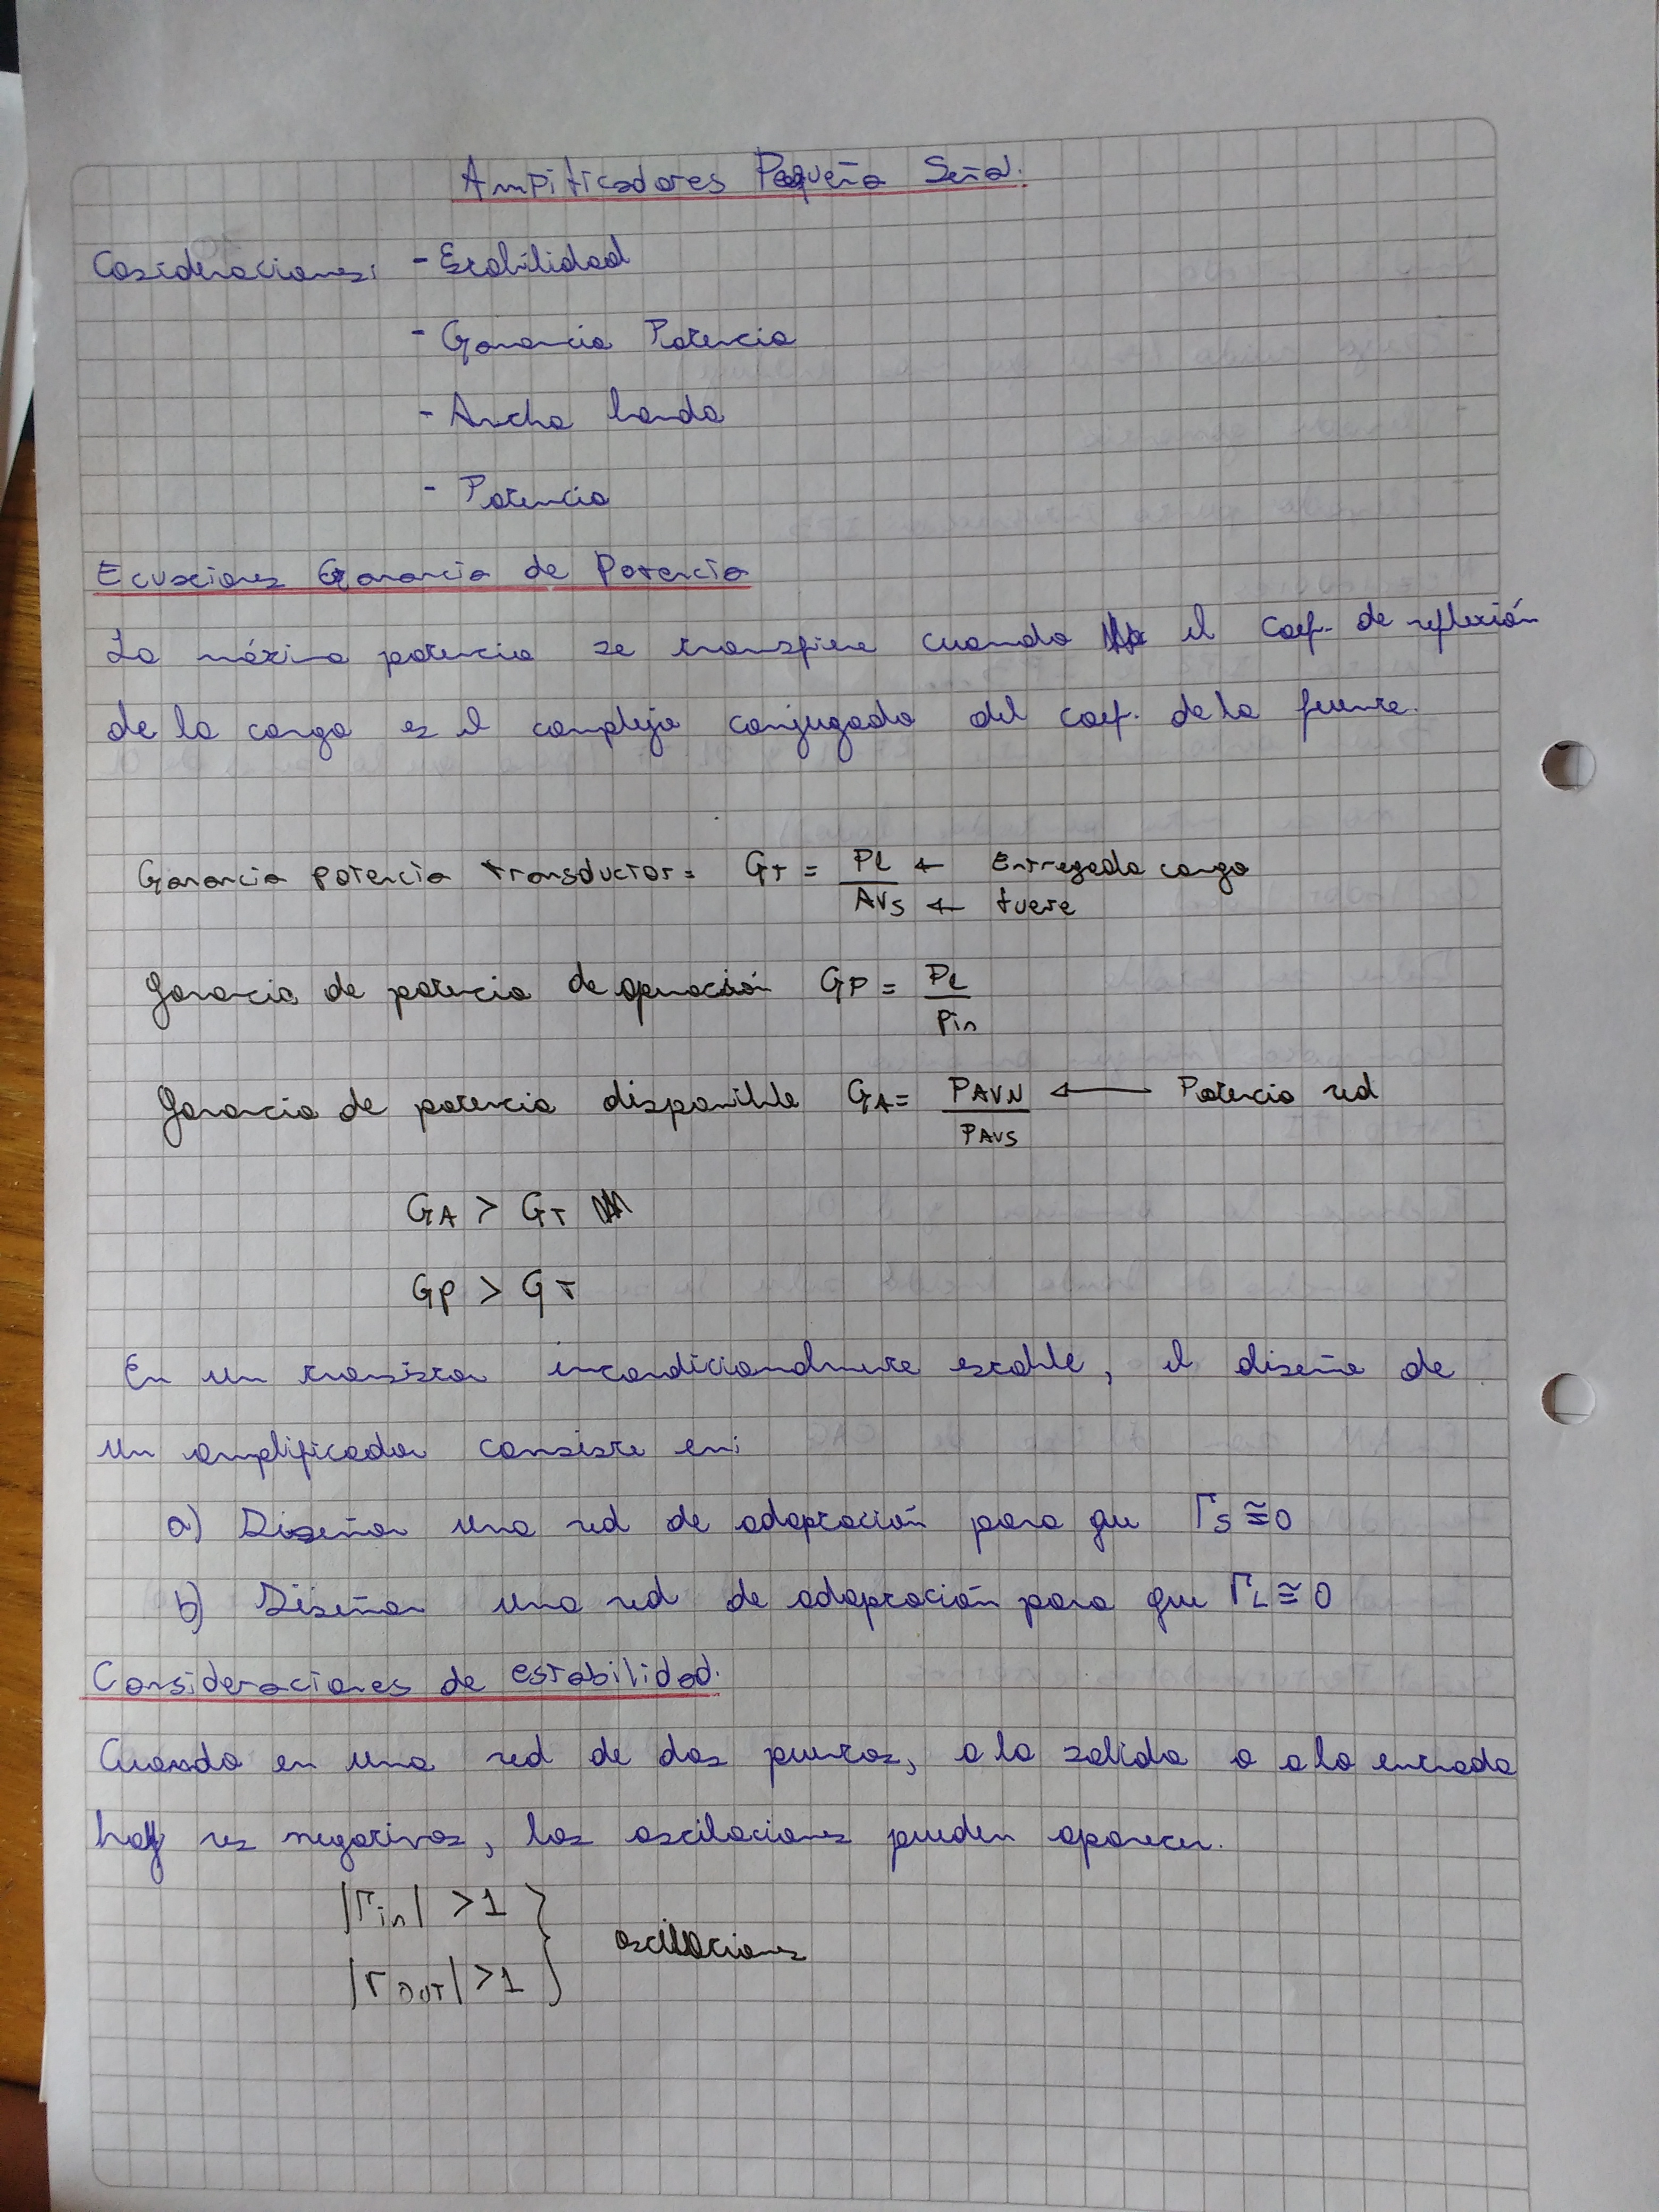 Ampificadores Pequeña Señal.
Cosideraciones: - Estabilidad
- Ganancia Potencia
- Ancho banda
- Potencia
Ecuaciones Ganancia de Potencia
La máxima potencia se transfiere cuando el coef. de reflexión
de la carga es el complejo conjugado del coef. de la fuente.
Ganancia potencia transductor: GT = PL / AVS ← Entregada carga
← fuete
Ganancia de potencia de operación GP = PL / Pin
Ganancia de potencia disponible GA = PAVN / PAVS ← Potencia red
GA > GT
GP > GT
En un transistor incondicionalmente estable, el diseño de
un amplificador consiste en:
a) Diseñar una red de adaptación para que ΓS ≅ 0
b) Diseñar una red de adaptación para que ΓL ≅ 0
Consideraciones de estabilidad.
Cuando en una red de dos puertos, a la salida o a la entrada
hay res negativas, las oscilaciones pueden aparecer.
|Γin| > 1 } oscilaciones
|ΓOUT| > 1